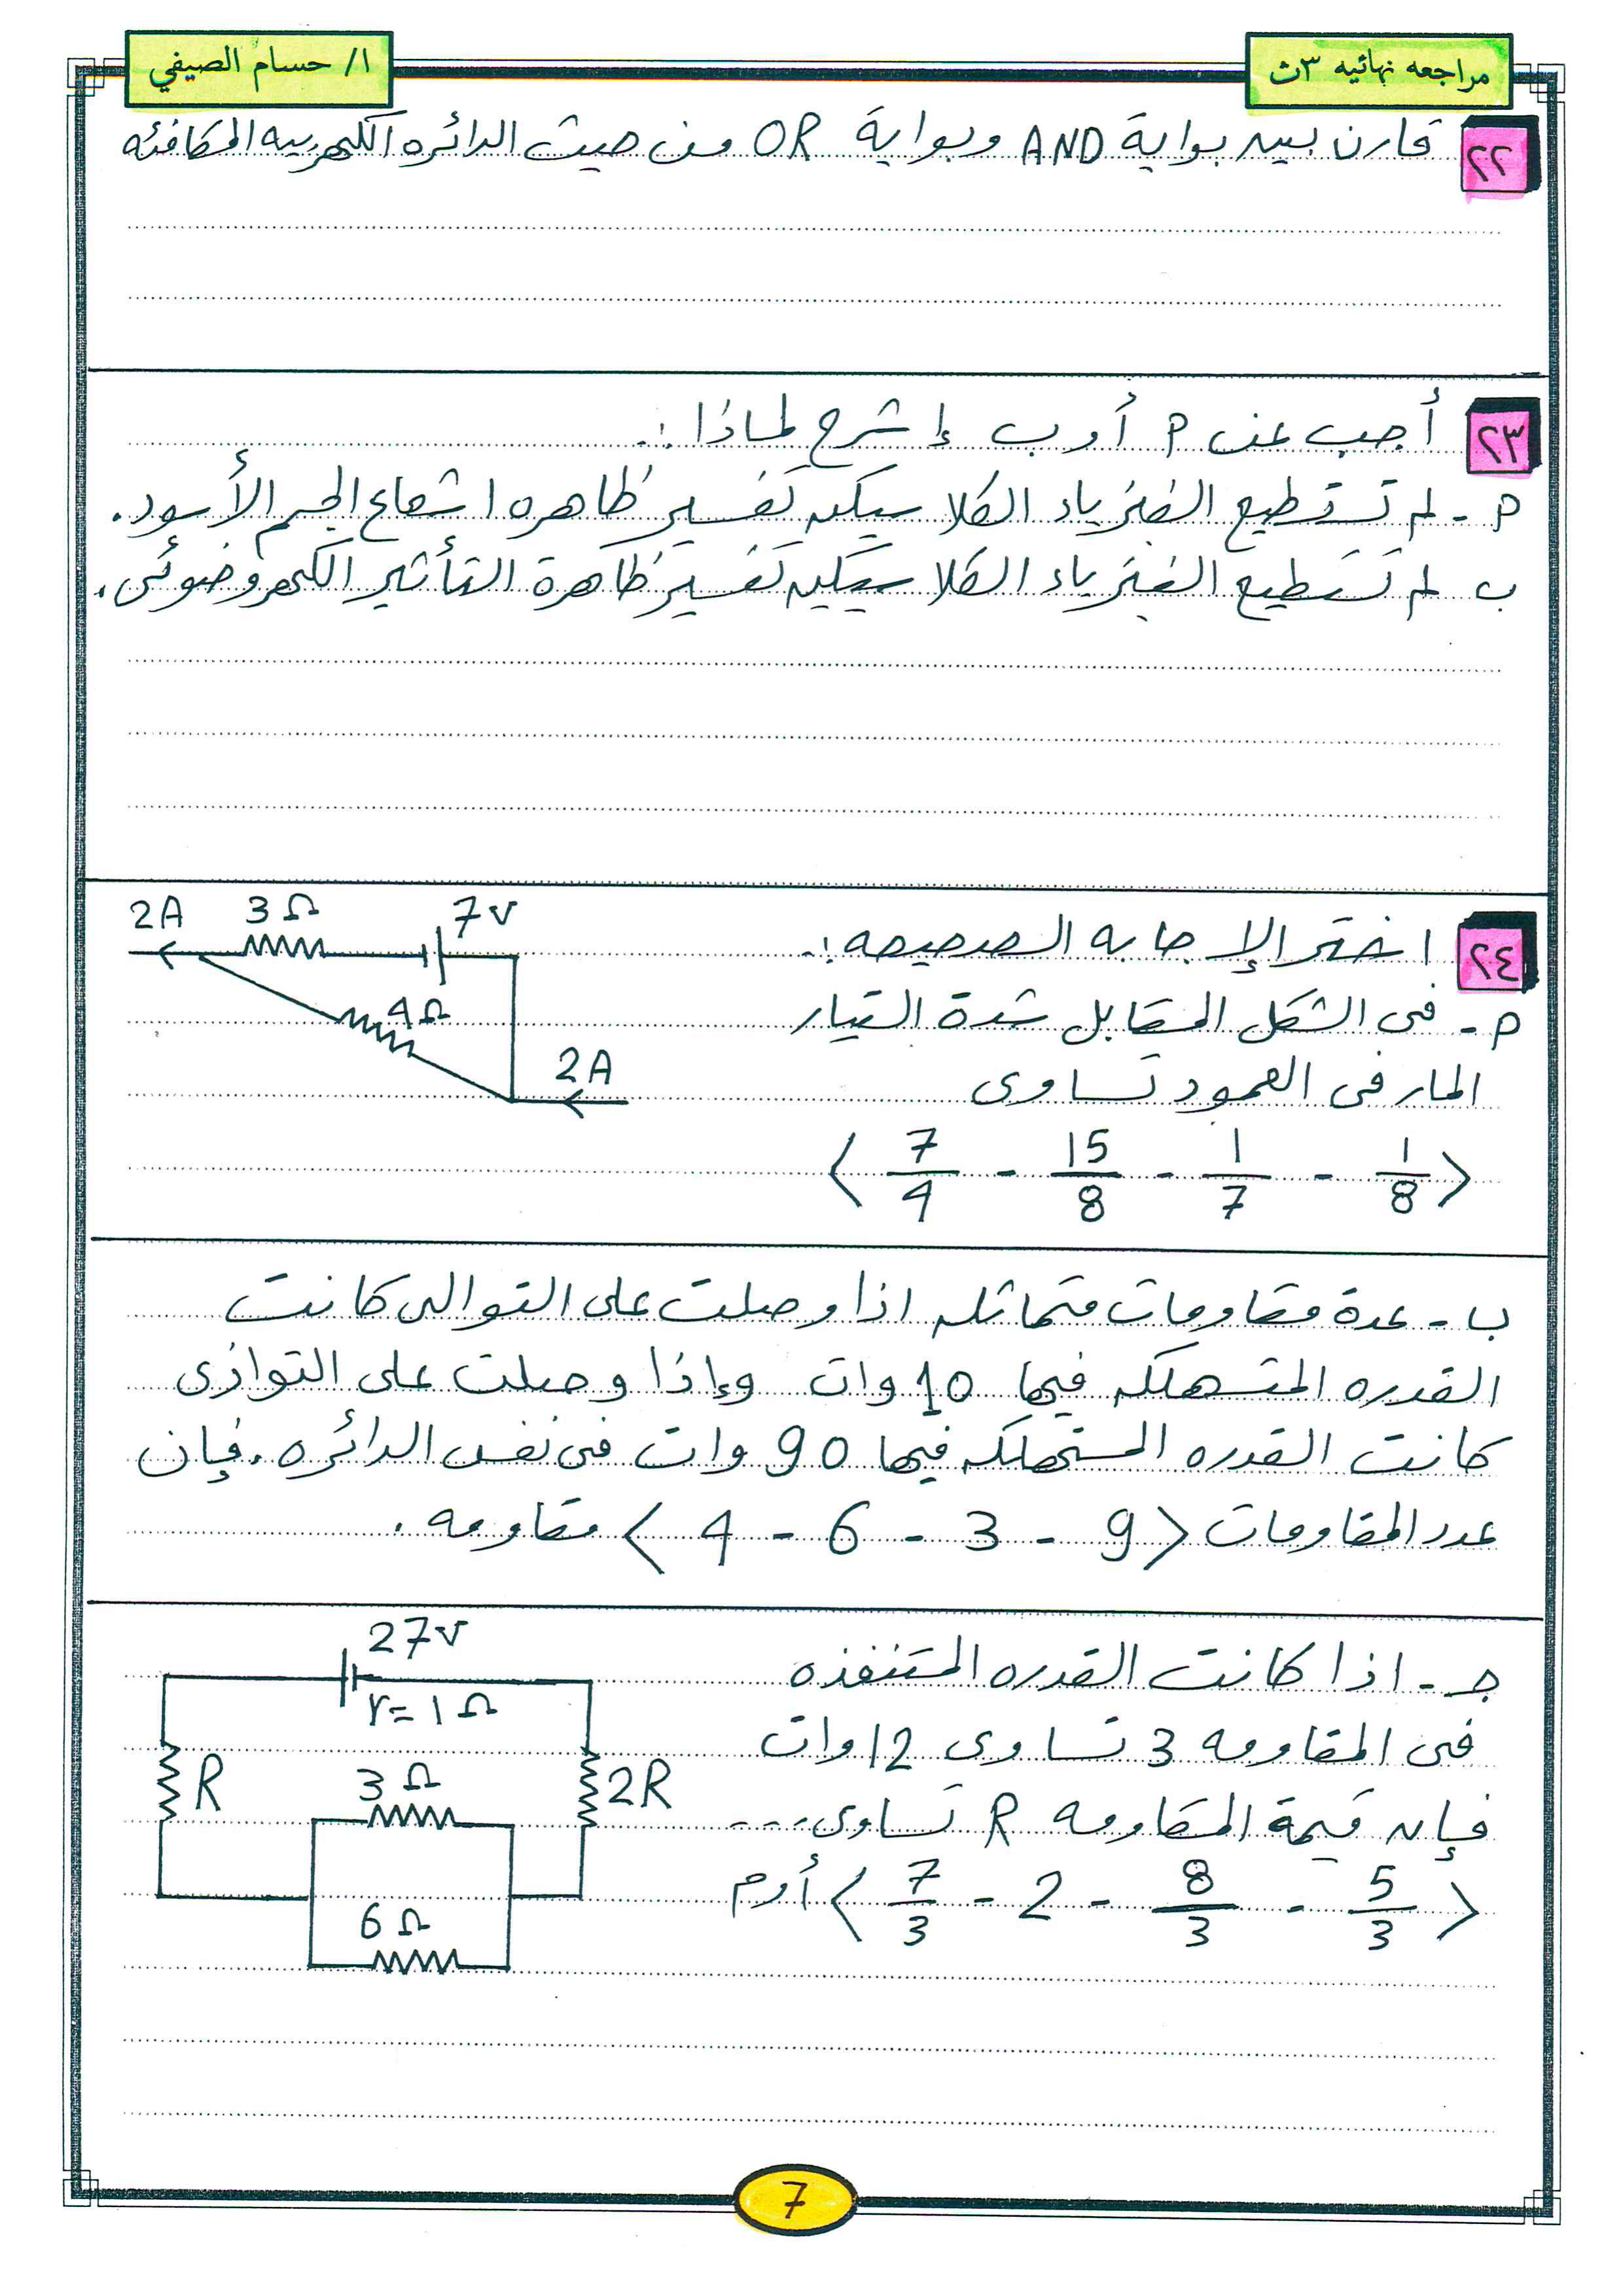 مراجعه نهائيه ٣ث
ا/ حسام الصيفي
٢٢ قارن بين بوابة AND وبوابة OR من حيث الدائره الكهربيه المكافئه
٢٣ أجب عن P أو ب إشرح لماذا :.
P - لم تستطيع الفيزياء الكلاسيكيه تفسير ظاهره اشعاع الجسم الأسود.
ب لم تستطيع الفيزياء الكلاسيكيه تفسير ظاهرة التأثير الكهروضوئى.
٢٤ اختر الإجابه الصحيحه :.
P - فى الشكل المقابل شدة التيار
المار فى العمود تساوى
< 7/4 - 15/8 - 1/7 - 1/8 >
2A 3Ω 7v
4Ω
2A
ب - عدة مقاومات متماثله اذا وصلت على التوالى كانت
القدره المستهلكه فيها 10 وات وإذا وصلت على التوازى
كانت القدره المستهلكه فيها 90 وات فى نفس الدائره . فإن
عدد المقاومات < 4 - 6 - 3 - 9 > مقاومه .
جـ - اذا كانت القدره المستنفذه
فى المقاومه 3 تساوى 12 وات
فإن قيمة المقاومه R تساوى ....
< 7/3 - 2 - 8/3 - 5/3 > أوم
27v
r = 1Ω
R 3Ω 2R
6Ω
7